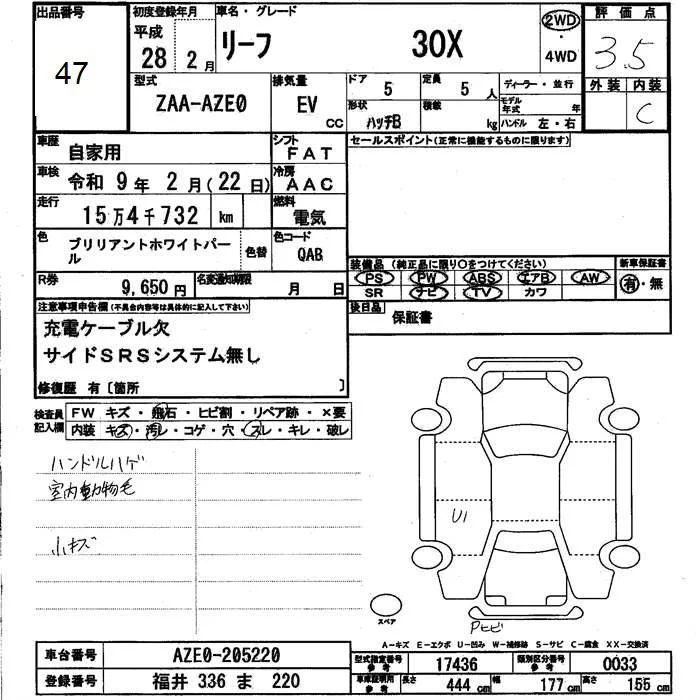 出品番号 初度登録年月 車名・グレード 評価点
47
平成
28年 2月
リーフ 30X
2WD
・
4WD
3.5
型式 排気量 ドア 定員 ディーラー・並行 外装 内装
ZAA-AZE0 EV CC 5 5 人
形状 積載 モデル年式 年
ハッチB kg ハンドル 左・右
C
車歴 自家用 シフト FAT セールスポイント(正常に機能するものに限ります)
車検 令和 9年 2月(22日) 冷房 AAC
走行 15万4千732 km 燃料 電気
色 ブリリアントホワイトパール 色替 色コード QAB
装備品 (純正品に限り○をつけてください) 新車保証書
R券 9,650円 名変通知期限 月 日
PS PW ABS エアB AW 有・無
SR ナビ TV カワ
注意事項申告欄(不具合内容等は具体的に記入して下さい)
後日品 保証書
充電ケーブル欠
サイドSRSシステム無し
修復歴 有〔箇所 〕
検査員記入欄
FW キズ・飛石・ヒビ割・リペア跡・×要
内装 キズ・汚レ・コゲ・穴・スレ・キレ・破レ
ハンドルハゲ
室内動物毛
小キズ
U1
スペア
Pヒビ
A-キズ E-エクボ U-凹み W-補修跡 S-サビ C-腐食 XX-交換済
車台番号 AZE0-205220
型式指定番号 参考 17436 類別区分番号 参考 0033
登録番号 福井 336 ま 220
車庫証明用 参考 長さ 444 cm 幅 177 cm 高さ 155 cm